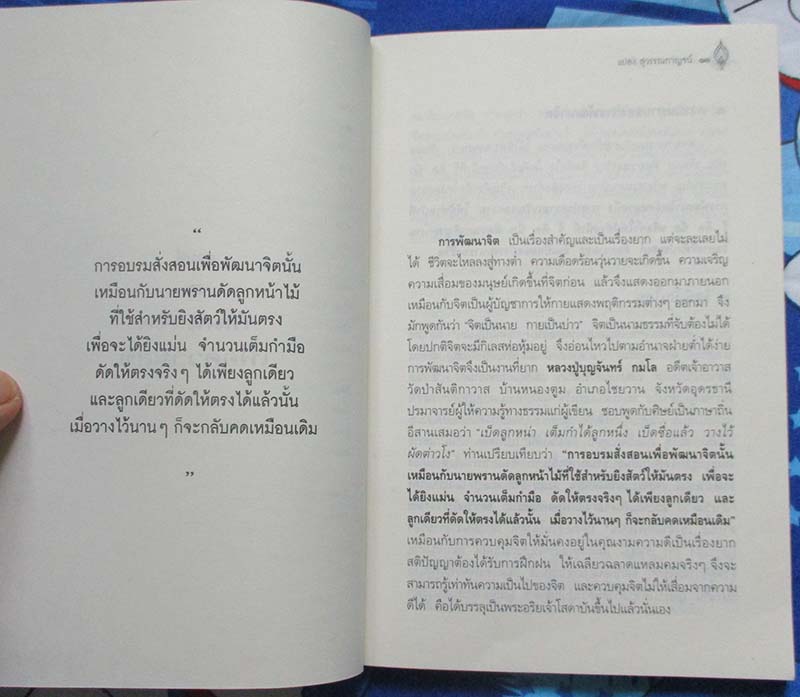 “
การอบรมสั่งสอนเพื่อพัฒนาจิตนั้น
เหมือนกับนายพรานดัดลูกหน้าไม้
ที่ใช้สำหรับยิงสัตว์ให้มันตรง
เพื่อจะได้ยิงแม่น จำนวนเต็มกำมือ
ดัดให้ตรงจริงๆ ได้เพียงลูกเดียว
และลูกเดียวที่ดัดให้ตรงได้แล้วนั้น
เมื่อวางไว้นานๆ ก็จะกลับคดเหมือนเดิม
”
แปลง สุวรรณกาญจน์
การพัฒนาจิต เป็นเรื่องสำคัญและเป็นเรื่องยาก แต่จะละเลยไม่
ได้ ชีวิตจะไหลลงสู่ทางต่ำ ความเดือดร้อนวุ่นวายจะเกิดขึ้น ความเจริญ
ความเสื่อมของมนุษย์เกิดขึ้นที่จิตก่อน แล้วจึงแสดงออกมาภายนอก
เหมือนกับจิตเป็นผู้บัญชาการให้กายแสดงพฤติกรรมต่างๆ ออกมา จึง
มักพูดกันว่า “จิตเป็นนาย กายเป็นบ่าว” จิตเป็นนามธรรมที่จับต้องไม่ได้
โดยปกติจิตจะมีกิเลสห่อหุ้มอยู่ จึงอ่อนไหวไปตามอำนาจฝ่ายต่ำได้ง่าย
การพัฒนาจิตจึงเป็นงานที่ยาก หลวงปู่บุญจันทร์ กมโล อดีตเจ้าอาวาส
วัดป่าสันติกาวาส บ้านหนองตูม อำเภอไชยวาน จังหวัดอุดรธานี
ปรมาจารย์ผู้ให้ความรู้ทางธรรมแก่ผู้เขียน ชอบพูดกับศิษย์เป็นภาษาถิ่น
อีสานเสมอว่า “เบ็ดลูกหน่า เต็มกำได้ลูกหนึ่ง เบ็ดซื่อแล้ว วางไว้
ผัดต่าวโง” ท่านเปรียบเทียบว่า “การอบรมสั่งสอนเพื่อพัฒนาจิตนั้น
เหมือนกับนายพรานดัดลูกหน้าไม้ที่ใช้สำหรับยิงสัตว์ให้มันตรง เพื่อจะ
ได้ยิงแม่น จำนวนเต็มกำมือ ดัดให้ตรงจริงๆ ได้เพียงลูกเดียว และ
ลูกเดียวที่ดัดให้ตรงได้แล้วนั้น เมื่อวางไว้นานๆ ก็จะกลับคดเหมือนเดิม”
เหมือนกับการควบคุมจิตให้มั่นคงอยู่ในคุณงามความดีเป็นเรื่องยาก
สติปัญญาต้องได้รับการฝึกฝน ให้เฉลียวฉลาดแหลมคมจริงๆ จึงจะ
สามารถรู้เท่าทันความเป็นไปของจิต และควบคุมจิตไม่ให้เสื่อมจากความ
ดีได้ คือได้บรรลุเป็นพระอริยเจ้าโสดาบันขึ้นไปแล้วนั่นเอง